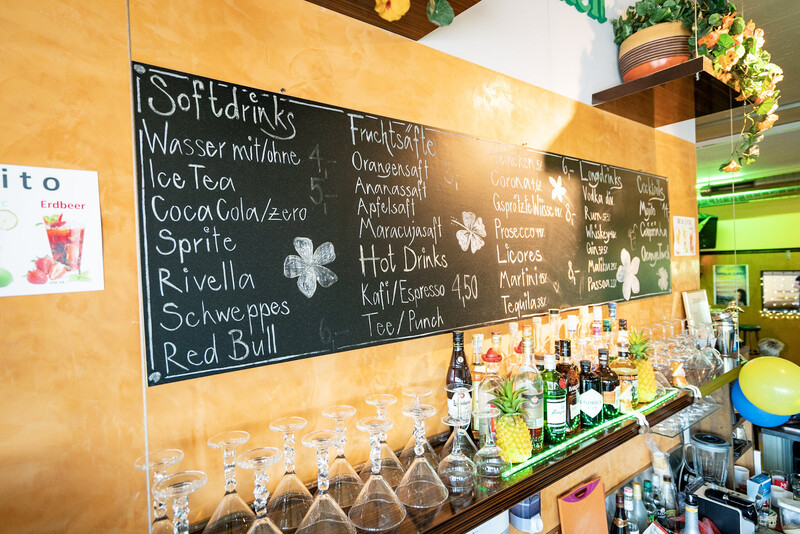 Softdrinks
Wasser mit/ohne 4,-
Ice Tea 5,-
Coca Cola/zero
Sprite
Rivella
Schweppes
Red Bull 6,-
Fruchtsäfte
Orangensaft
Ananassaft
Apfelsaft
Maracujasaft
Hot Drinks
Kafi/Espresso 4,50
Tee/Punch
6,-
Corona
Gsprützte Wiisse
8,-
Prosecco
Licores
Martini 8,-
Tequila
Longdrinks
Vodka
Rum
Whiskey
Gin
Malibu
Passoa
Cocktails
Mojito
Caipirinha
ito
Erdbeer